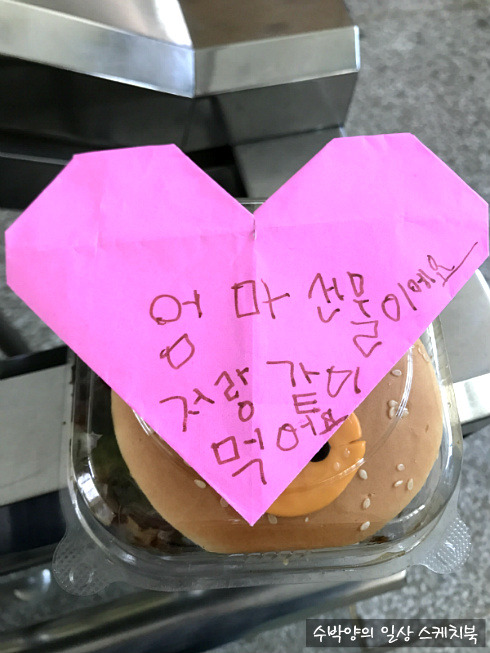 엄마 선물이에요
저랑 같이
먹어요
수박양의 일상 스케치북